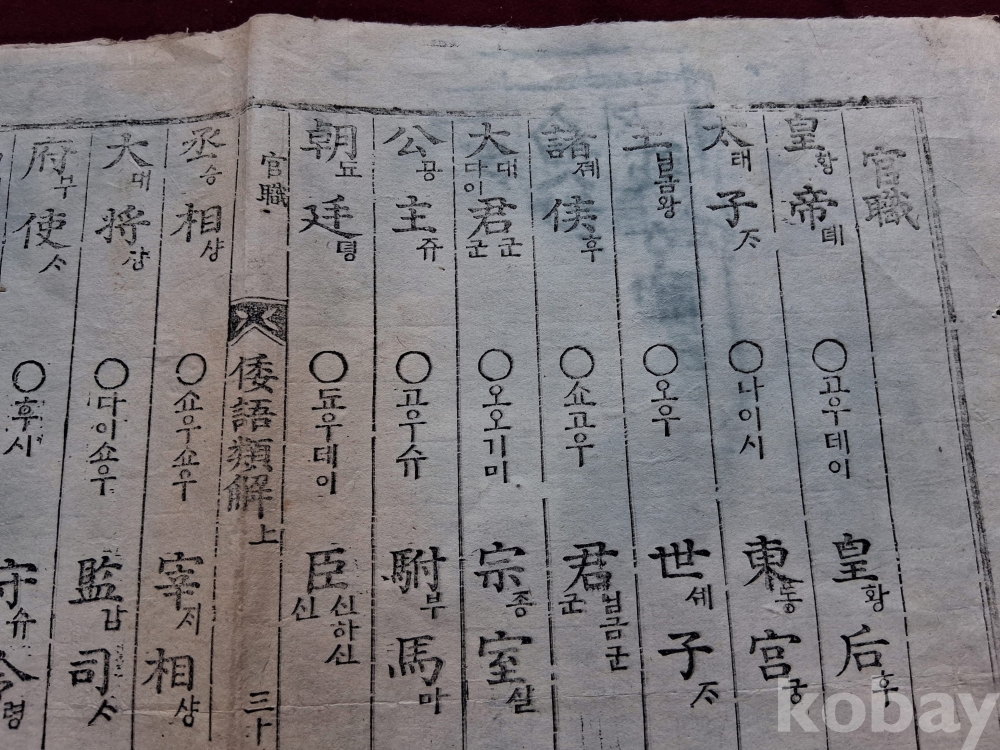 官職
皇황帝뎨 ○고우데이 皇황后후
太태子ᄌᆞ ○나이시 東동宮궁
王님금왕 ○오우 世셰子ᄌᆞ
諸졔侯후 ○쇼고우 君님금군 군
大대君군 다이군 ○오오기미 宗종室실
公공主쥬 ○고우슈 駙부馬마
朝됴廷뎡 ○됴우데이 臣신하신 신
官職 倭語類解 上 三十
丞승相샹 ○쇼우쇼우 宰ᄌᆡ相샹
大대將쟝 ○다이쇼우 監감司ᄉᆞ
府부使ᄉᆞ ○후시 守슈令령
kobay